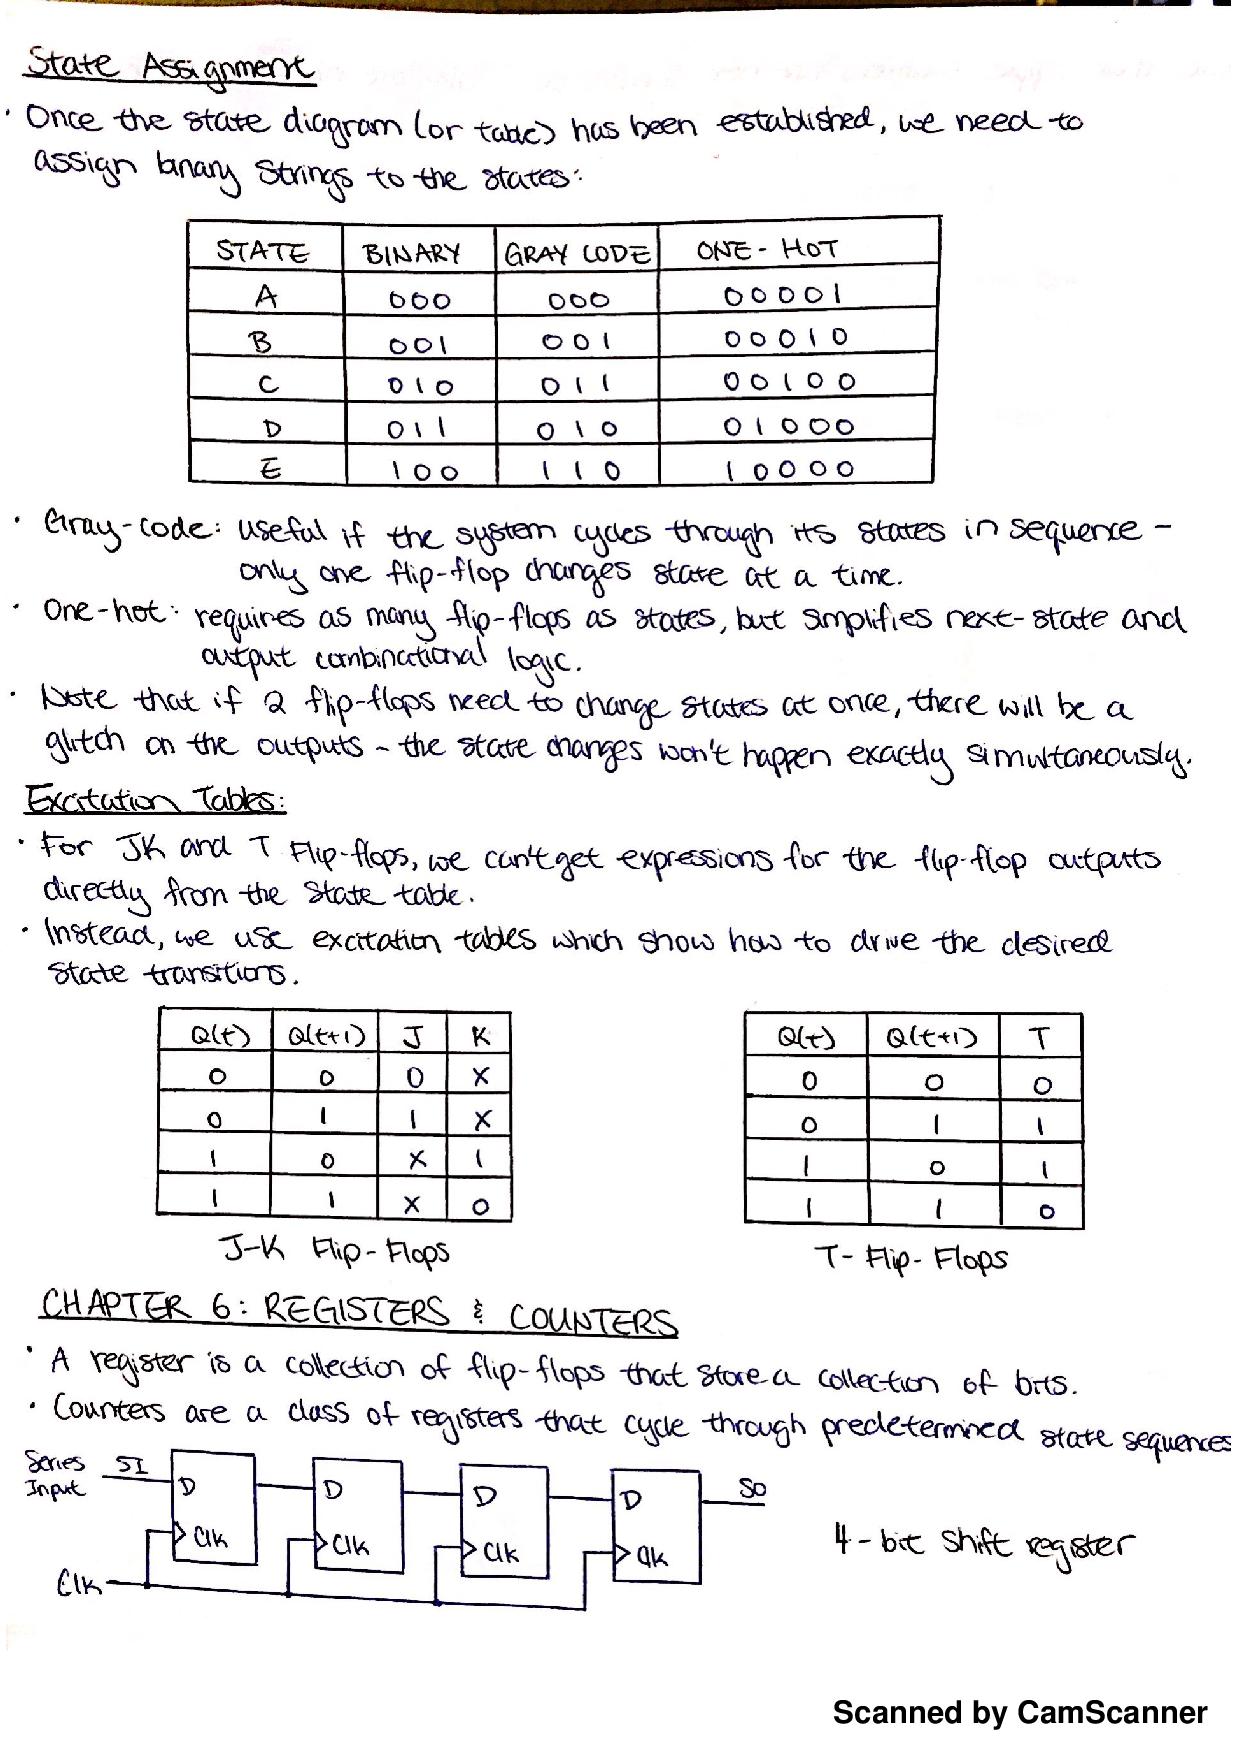 State Assignment
· Once the state diagram (or table) has been established, we need to
assign binary strings to the states:
STATE BINARY GRAY CODE ONE-HOT
A 000 000 00001
B 001 001 00010
C 010 011 00100
D 011 010 01000
E 100 110 10000
· Gray-code: useful if the system cycles through its states in sequence –
only one flip-flop changes state at a time.
· One-hot: requires as many flip-flops as states, but simplifies next-state and
output combinational logic.
· Note that if 2 flip-flops need to change states at once, there will be a
glitch on the outputs – the state changes won't happen exactly simultaneously.
Excitation Tables:
· For JK and T Flip-flops, we can't get expressions for the flip-flop outputs
directly from the state table.
· Instead, we use excitation tables which show how to drive the desired
state transitions.
Q(t) Q(t+1) J K
0 0 0 X
0 1 1 X
1 0 X 1
1 1 X 0
J-K Flip-Flops
Q(t) Q(t+1) T
0 0 0
0 1 1
1 0 1
1 1 0
T-Flip-Flops
CHAPTER 6: REGISTERS & COUNTERS
· A register is a collection of flip-flops that store a collection of bits.
· Counters are a class of registers that cycle through predetermined state sequences
Series SI
Input
D D D D SO
Clk Clk Clk Clk
Clk
4-bit shift register
Scanned by CamScanner